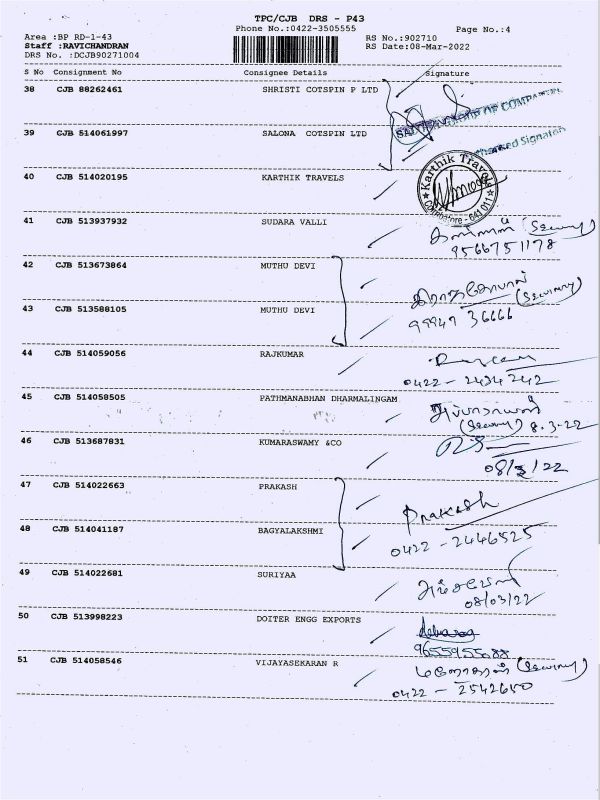 TPC/CJB DRS - P43
Phone No.:0422-3505555
Page No.:4
Area :BP RD-1-43
RS No.:902710
Staff :RAVICHANDRAN
RS Date:08-Mar-2022
DRS No. :DCJB90271004
S No Consignment No Consignee Details Signature
38 CJB 88262461 SHRISTI COTSPIN P LTD
39 CJB 514061997 SALONA COTSPIN LTD
40 CJB 514020195 KARTHIK TRAVELS
Karthik Travels
Coimbatore - 641 011
41 CJB 513937932 SUDARA VALLI
9566751178
42 CJB 513673864 MUTHU DEVI
43 CJB 513588105 MUTHU DEVI
99947 36666
44 CJB 514059056 RAJKUMAR
0422 - 2434242
45 CJB 514058505 PATHMANABHAN DHARMALINGAM
8.3-22
46 CJB 513687831 KUMARASWAMY &CO
08/3/22
47 CJB 514022663 PRAKASH
Prakash
48 CJB 514041187 BAGYALAKSHMI
0422 - 2446525
49 CJB 514022681 SURIYAA
08/03/22
50 CJB 513998223 DOITER ENGG EXPORTS
9655955088
51 CJB 514058546 VIJAYASEKARAN R
0422 - 2542650